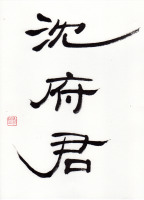 沈府君